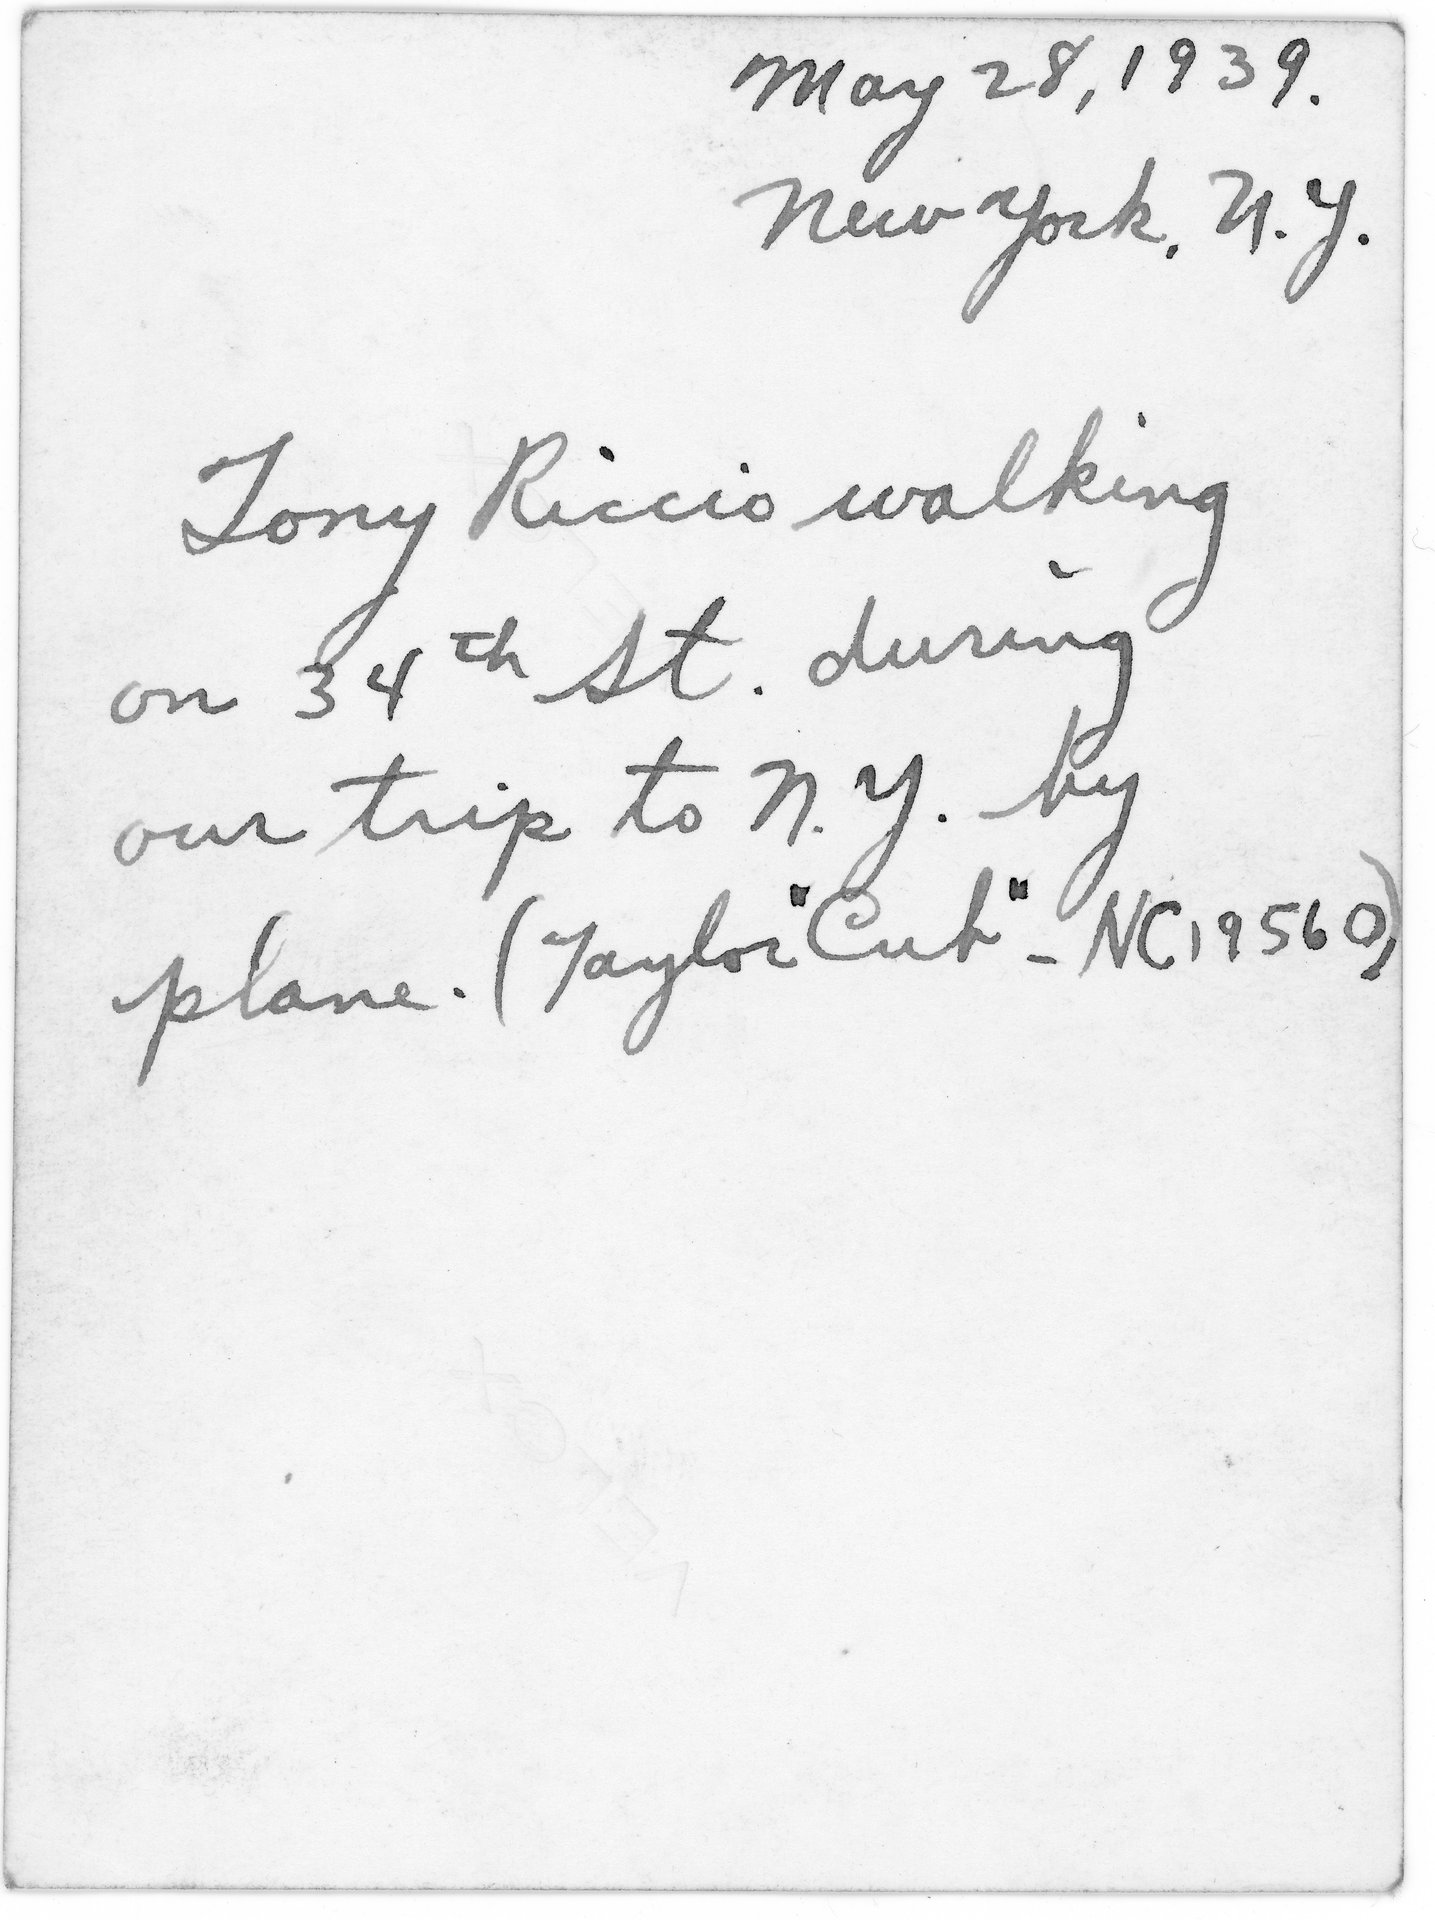 May 28, 1939.
New York, N.Y.
Tony Riccio walking
on 34th St. during
our trip to N.Y. by
plane. (Taylor "Cub" - NC19560)